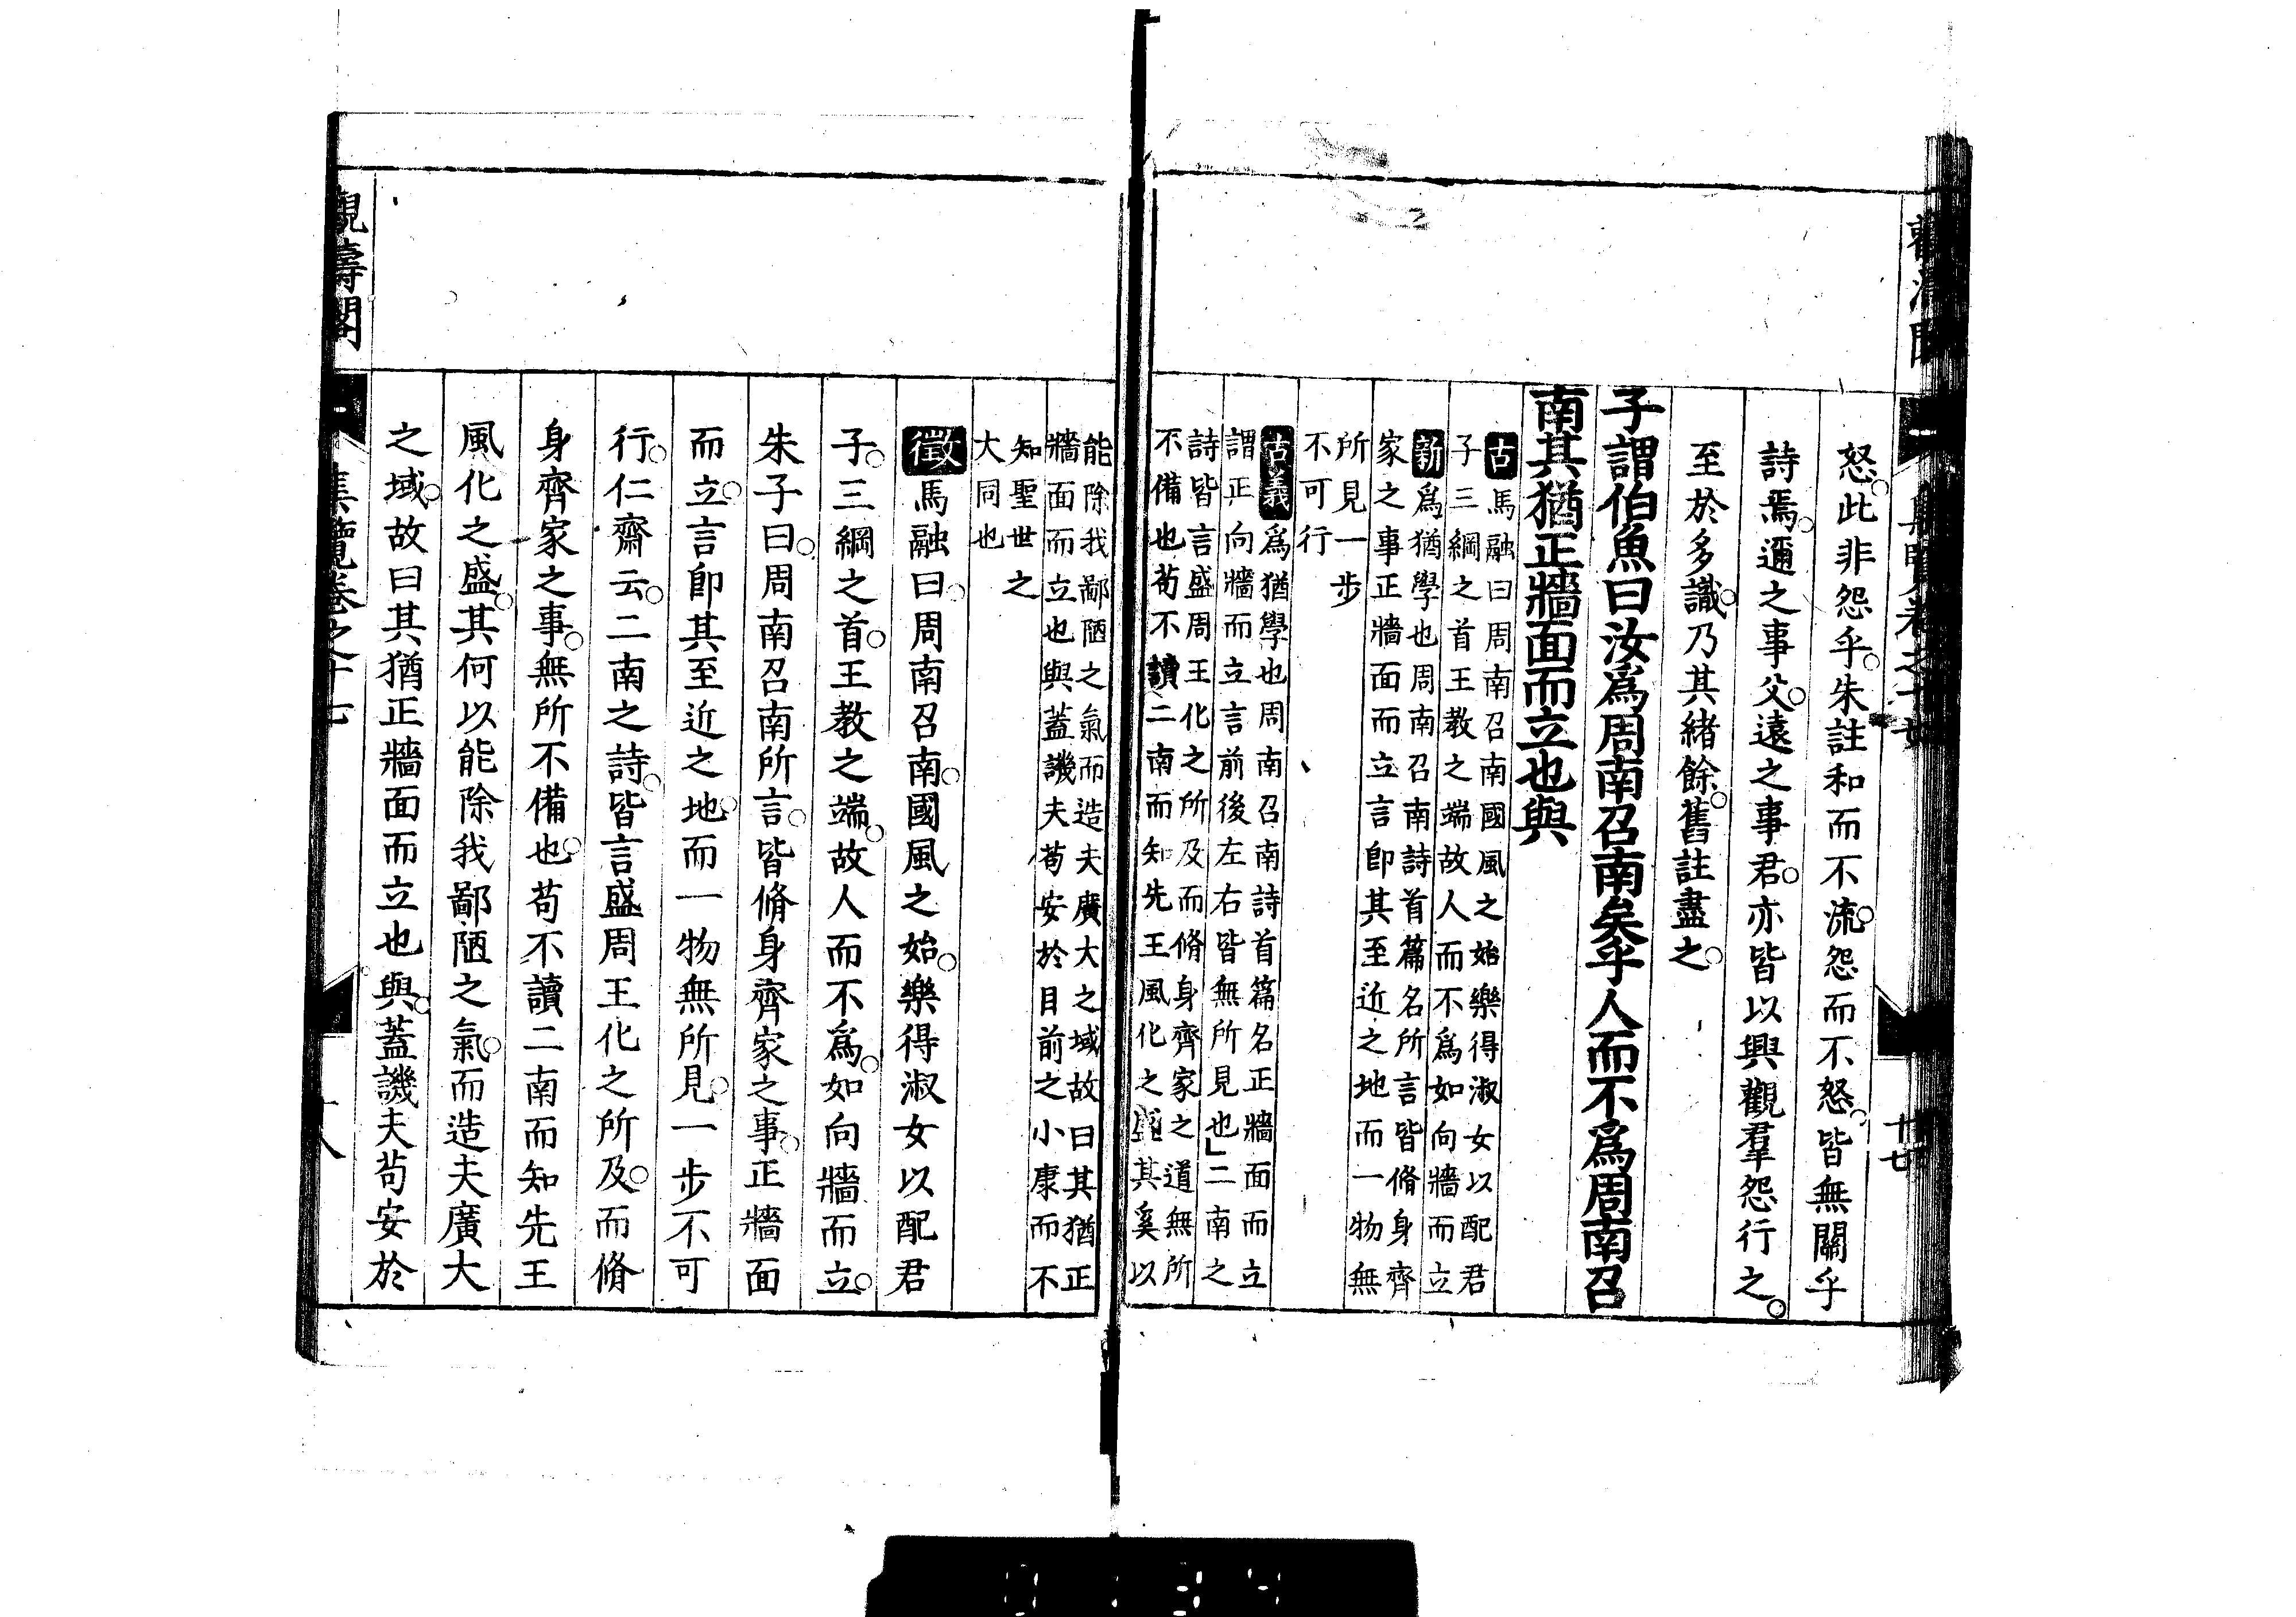 怒。此非怨乎。朱註和而不流。怨而不怒。皆無關乎
詩焉。邇之事父。遠之事君。亦皆以興觀羣怨行之。
至於多識。乃其緒餘。舊註盡之。
子謂伯魚曰汝爲周南召南矣乎人而不爲周南召
南其猶正牆面而立也與
古馬融曰周南召南國風之始樂得淑女以配君
子三綱之首王教之端故人而不爲如向牆而立
新爲猶學也周南召南詩首篇名所言皆脩身齊
家之事正牆面而立言卽其至近之地而一物無
所見一步
不可行
古義爲猶學也周南召南詩首篇名正牆面而立
謂正向牆而立言前後左右皆無所見也」二南之
詩皆言盛周王化之所及而脩身齊家之道無所
不備也苟不讀二南而知先王風化之盛其奚以
能除我鄙陋之氣而造夫廣大之域故曰其猶正
牆面而立也與蓋譏夫苟安於目前之小康而不
知聖世之
大同也
徵馬融曰。周南召南。國風之始。樂得淑女以配君
子。三綱之首。王教之端。故人而不爲。如向牆而立。
朱子曰。周南召南所言。皆脩身齊家之事。正牆面
而立。言卽其至近之地。而一物無所見。一步不可
行。仁齋云。二南之詩。皆言盛周王化之所及。而脩
身齊家之事。無所不備也。苟不讀二南而知先王
風化之盛。其何以能除我鄙陋之氣。而造夫廣大
之域。故曰其猶正牆面而立也與。蓋譏夫苟安於
觀濤閣
集覽卷之十七
十八